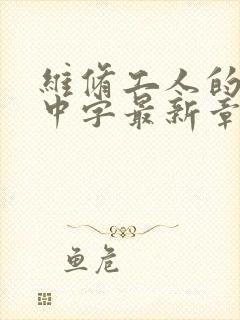 維脩工人的
中字最新章
鱼危